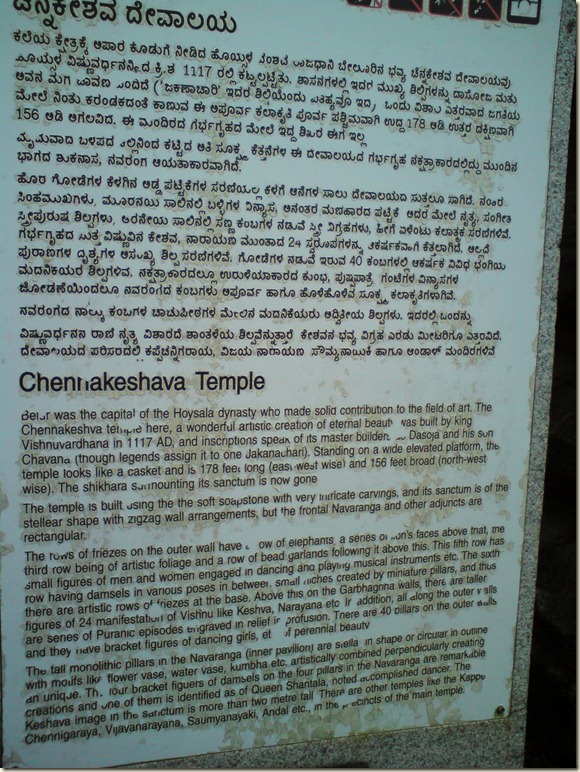 ಚೆನ್ನಕೇಶವ ದೇವಾಲಯ
ಕಲೆಯ ಕ್ಷೇತ್ರಕ್ಕೆ ಅಪಾರ ಕೊಡುಗೆ ನೀಡಿದ ಹೊಯ್ಸಳ ವಂಶದ ರಾಜಧಾನಿ ಬೇಲೂರಿನ ಭವ್ಯ ಚೆನ್ನಕೇಶವ ದೇವಾಲಯವು
ಹೊಯ್ಸಳ ವಿಷ್ಣುವರ್ಧನನಿಂದ ಕ್ರಿ.ಶ 1117 ರಲ್ಲಿ ಕಟ್ಟಲ್ಪಟ್ಟಿತು. ಶಾಸನಗಳಲ್ಲಿ ಇದರ ಮುಖ್ಯ ಶಿಲ್ಪಿಗಳನ್ನು ದಾಸೋಜ ಮತ್ತು
ಅವನ ಮಗ ಚಾವಣ ಎಂದಿದೆ ('ಜಕಣಾಚಾರಿ' ಇದರ ಶಿಲ್ಪಿಯೆಂದು ಐತಿಹ್ಯವೂ ಇದೆ). ಒಂದು ವಿಶಾಲ ಎತ್ತರವಾದ ಜಗತಿಯ
ಮೇಲೆ ನಿಂತು ಕರಂಡಕದಂತೆ ಕಾಣುವ ಈ ಅಪೂರ್ವ ಕಲಾಕೃತಿ ಪೂರ್ವ ಪಶ್ಚಿಮವಾಗಿ ಉದ್ದ 178 ಅಡಿ ಉತ್ತರ ದಕ್ಷಿಣವಾಗಿ
156 ಅಡಿ ಅಗಲವಿದೆ. ಈ ಮಂದಿರದ ಗರ್ಭಗೃಹದ ಮೇಲೆ ಇದ್ದ ಶಿಖರ ಈಗ ಇಲ್ಲ
ಮೃದುವಾದ ಬಳಪದ ಕಲ್ಲಿನಿಂದ ಕಟ್ಟಿದ ಅತಿ ಸೂಕ್ಷ್ಮ ಕೆತ್ತನೆಗಳ ಈ ದೇವಾಲಯದ ಗರ್ಭಗೃಹ ನಕ್ಷತ್ರಾಕಾರದಲ್ಲಿದ್ದು ಮುಂದಿನ
ಭಾಗದ ಶುಕನಾಸ, ನವರಂಗ ಆಯತಾಕಾರವಾಗಿದೆ.
ಹೊರ ಗೋಡೆಗಳ ಕೆಳಗಿನ ಅಡ್ಡ ಪಟ್ಟಿಕೆಗಳ ಸರಣಿಯಲ್ಲಿ ಕೆಳಗೆ ಆನೆಗಳ ಸಾಲು ದೇವಾಲಯದ ಸುತ್ತಲೂ ಸಾಗಿದೆ. ನಂತರ
ಸಿಂಹಮುಖಗಳು, ಮೂರನೆಯ ಸಾಲಿನಲ್ಲಿ ಬಳ್ಳಿಗಳ ವಿನ್ಯಾಸ, ಅನಂತರ ಮಣಿಹಾರದ ಪಟ್ಟಿಕೆ ಇದರ ಮೇಲೆ ನೃತ್ಯ, ಸಂಗೀತ
ಸ್ತ್ರೀಪುರುಷ ಶಿಲ್ಪಗಳು, ಆರನೇಯ ಸಾಲಿನಲ್ಲಿ ಸಣ್ಣ ಕಂಬಗಳ ನಡುವೆ ಸ್ತ್ರೀ ವಿಗ್ರಹಗಳು, ಹೀಗೆ ಏಳೆಂಟು ಕಲಾತ್ಮಕ ಸರಣಿಗಳಿವೆ.
ಗರ್ಭಗೃಹದ ಸುತ್ತ ವಿಷ್ಣುವಿನ ಕೇಶವ, ನಾರಾಯಣ ಮುಂತಾದ 24 ಸ್ವರೂಪಗಳನ್ನು ಆಕರ್ಷಕವಾಗಿ ಕೆತ್ತಲಾಗಿದೆ. ಅಲ್ಲದೆ
ಪುರಾಣಗಳ ದೃಶ್ಯಗಳ ಅಸಂಖ್ಯ ಶಿಲ್ಪ ಸರಣಿಗಳಿವೆ. ಗೋಡೆಗಳ ನಡುವೆ ಇರುವ 40 ಕಂಬಗಳಲ್ಲಿ ಆಕರ್ಷಕ ವಿವಿಧ ಭಂಗಿಯ
ಮದನಿಕೆಯರ ಶಿಲ್ಪಗಳಿವೆ. ನಕ್ಷತ್ರಾಕಾರದಲ್ಲೂ ಉರುಳೆಯಾಕಾರದ ಕುಂಭ, ಪುಷ್ಪಪಾತ್ರೆ ಗಂಟೆಗಳ ವಿನ್ಯಾಸಗಳ
ಜೋಡಣೆಯಿಂದಲೂ ನವರಂಗದ ಕಂಬಗಳು ಅಪೂರ್ವ ಹಾಗೂ ಹೊಳೆಹೊಳೆವ ಸೂಕ್ಷ್ಮ ಕಲಾಕೃತಿಗಳಾಗಿವೆ.
ನವರಂಗದ ನಾಲ್ಕು ಕಂಬಗಳ ಚಾಚುಪೀಠಗಳ ಮೇಲಿನ ಮದನಿಕೆಯರು ಅದ್ವಿತೀಯ ಶಿಲ್ಪಗಳು. ಇದರಲ್ಲಿ ಒಂದನ್ನು
ವಿಷ್ಣುವರ್ಧನನ ರಾಣಿ ನೃತ್ಯ ವಿಶಾರದೆ ಶಾಂತಳೆಯ ಶಿಲ್ಪವೆನ್ನುತ್ತಾರೆ ಕೇಶವನ ಭವ್ಯ ವಿಗ್ರಹ ಎರಡು ಮೀಟರಿಗೂ ಎತ್ತರವಿದೆ.
ದೇವಾಲಯದ ಪರಿಸರದಲ್ಲಿ ಕಪ್ಪೆಚನ್ನಿಗರಾಯ, ವಿಜಯ ನಾರಾಯಣ ಸೌಮ್ಯನಾಯಿಕಿ ಹಾಗೂ ಆಂಡಾಳ್ ಮಂದಿರಗಳಿವೆ
Chennakeshava Temple
Belur was the capital of the Hoysala dynasty who made solid contribution to the field of art. The
Chennakeshva temple here, a wonderful artistic creation of eternal beauty was built by king
Vishnuvardhana in 1117 AD, and inscriptions speak of its master builders Dasoja and his son
Chavana (though legends assign it to one Jakanachari). Standing on a wide elevated platform, the
temple looks like a casket and is 178 feet long (east-west wise) and 156 feet broad (north-west
wise). The shikhara surmounting its sanctum is now gone
The temple is built using the the soft soapstone with very intricate carvings, and its sanctum is of the
stellear shape with zigzag wall arrangements, but the frontal Navaranga and other adjuncts are
rectangular.
The rows of friezes on the outer wall have a row of elephants, a series of lion's faces above that, the
third row being of artistic foliage and a row of bead garlands following it above this. This fifth row has
small figures of men and women engaged in dancing and playing musical instruments etc. The sixth
row having damsels in various poses in between small niches created by miniature pillars, and thus
there are artistic rows of friezes at the base. Above this on the Garbhagriha walls, there are taller
figures of 24 manifestation of Vishnu like Keshva, Narayana etc In addition, all along the outer walls
are series of Puranic episodes engraved in relief in profusion. There are 40 pillars on the outer walls
and they have bracket figures of dancing girls, etc of perennial beauty
The tall monolithic pillars in the Navaranga (inner pavilion) are stellar in shape or circular in outline
with motifs like flower vase, water vase, kumbha etc. artistically combined perpendicularly creating
an unique. The four bracket figuers of damsels on the four pillars in the Navaranga are remarkable
creations and one of them is identified as of Queen Shantala, noted accomplished dancer. The
Keshava image in the sanctum is more than two metre tall There are other temples like the Kappe
Chennigaraya, Vijayanarayana, Saumyanayaki, Andal etc., in the precincts of the main temple.